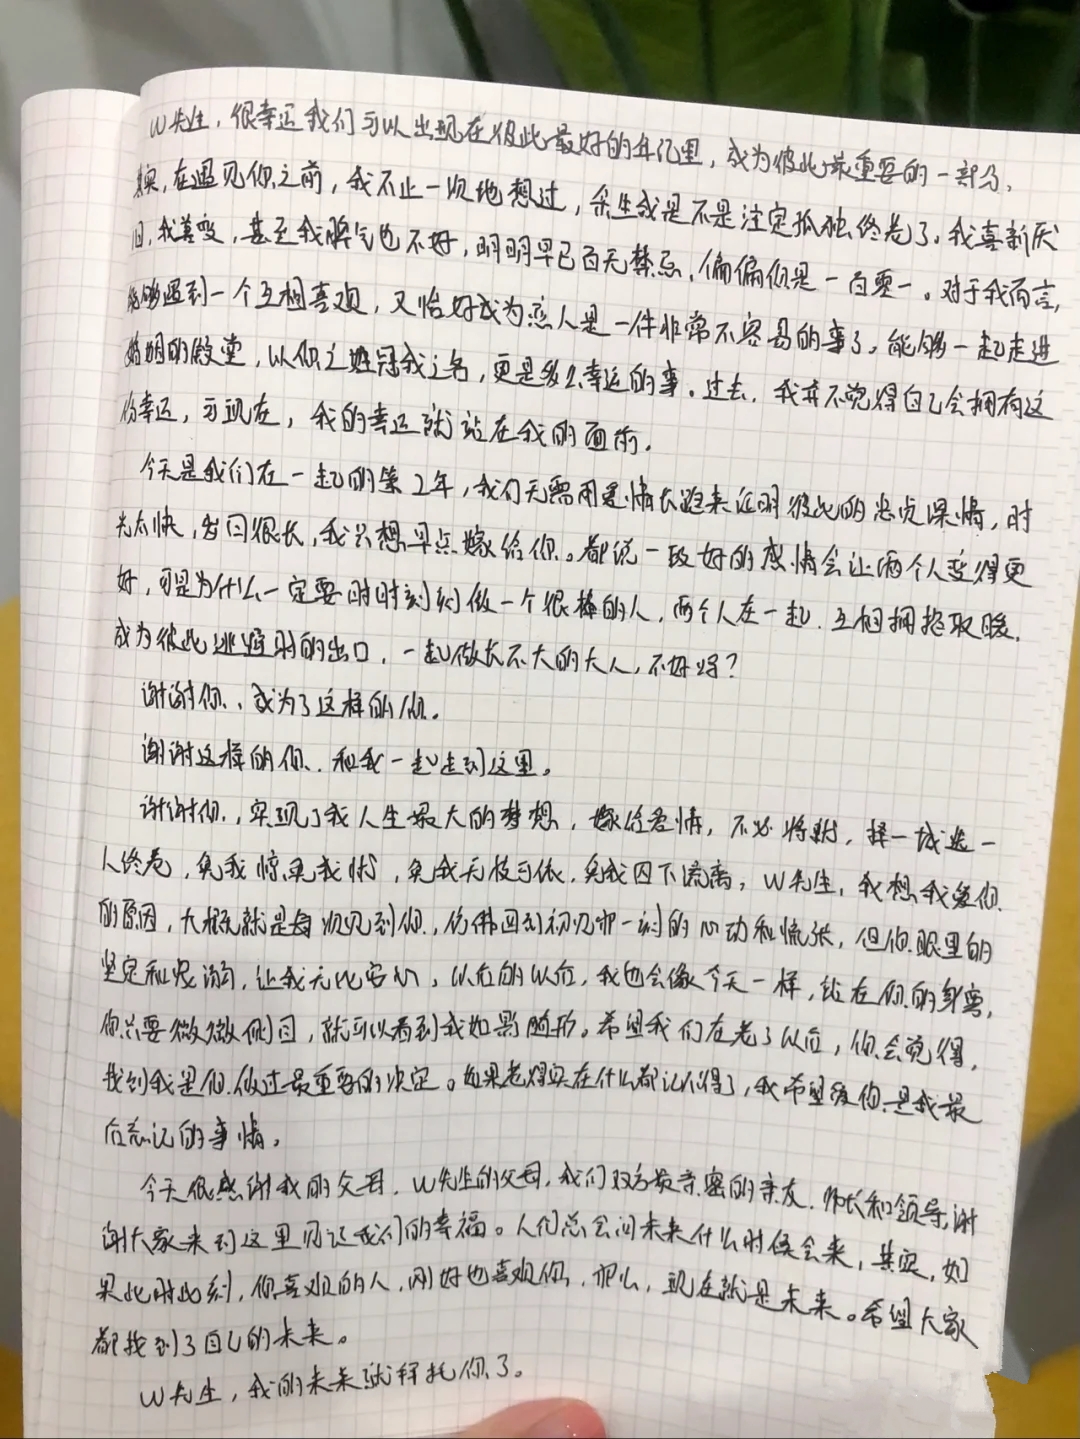 W先生，很幸运我们可以出现在彼此最好的年纪里，成为彼此最重要的一部分，
其实，在遇见你之前，我不止一次地想过，余生我是不是注定孤独终老了。我喜新厌
旧，我善变，甚至我脾气也不好，明明早已百无禁忌，偏偏你是一百零一。对于我而言，
能够遇到一个互相喜欢，又恰好成为恋人是一件非常不容易的事了。能够一起走进
婚姻的殿堂，以你之姓冠我之名，更是多么幸运的事。过去，我并不觉得自己会拥有这
份幸运，可现在，我的幸运就站在我的面前。
今天是我们在一起的第2年，我们无需用爱情长跑来证明彼此的忠贞深情，时
光太快，岁月很长，我只想早点嫁给你。都说一段好的感情会让两个人变得更
好，可是为什么一定要时时刻刻做一个很棒的人，两个人在一起，互相拥抱取暖，
成为彼此逃避时的出口，一起做长不大的大人，不好吗？
谢谢你，成为了这样的你。
谢谢这样的你，和我一起走到这里。
谢谢你，实现了我人生最大的梦想，嫁给爱情，不必将就，择一城选一
人终老，免我惊免我忧，免我无枝可依，免我四下流离，W先生，我想我爱你
的原因，大概就是每次见到你，仿佛回到初见那一刻的心动和慌张，但你眼里的
坚定和宠溺，让我无比安心，以后的以后，我也会像今天一样，站在你的身旁，
你只要微微侧目，就可以看到我如影随形。希望我们在老了以后，你会觉得，
找到我是你做过最重要的决定。如果老得实在什么都记不得了，我希望爱你是我最
后忘记的事情。
今天很感谢我的父母，W先生的父母，我们双方最亲密的亲友，师长和领导，谢
谢大家来到这里见证我们的幸福。人们总会问未来什么时候会来，其实，如
果此时此刻，你喜欢的人，刚好也喜欢你，那么，现在就是未来。希望大家
都找到了自己的未来。
W先生，我的未来就拜托你了。